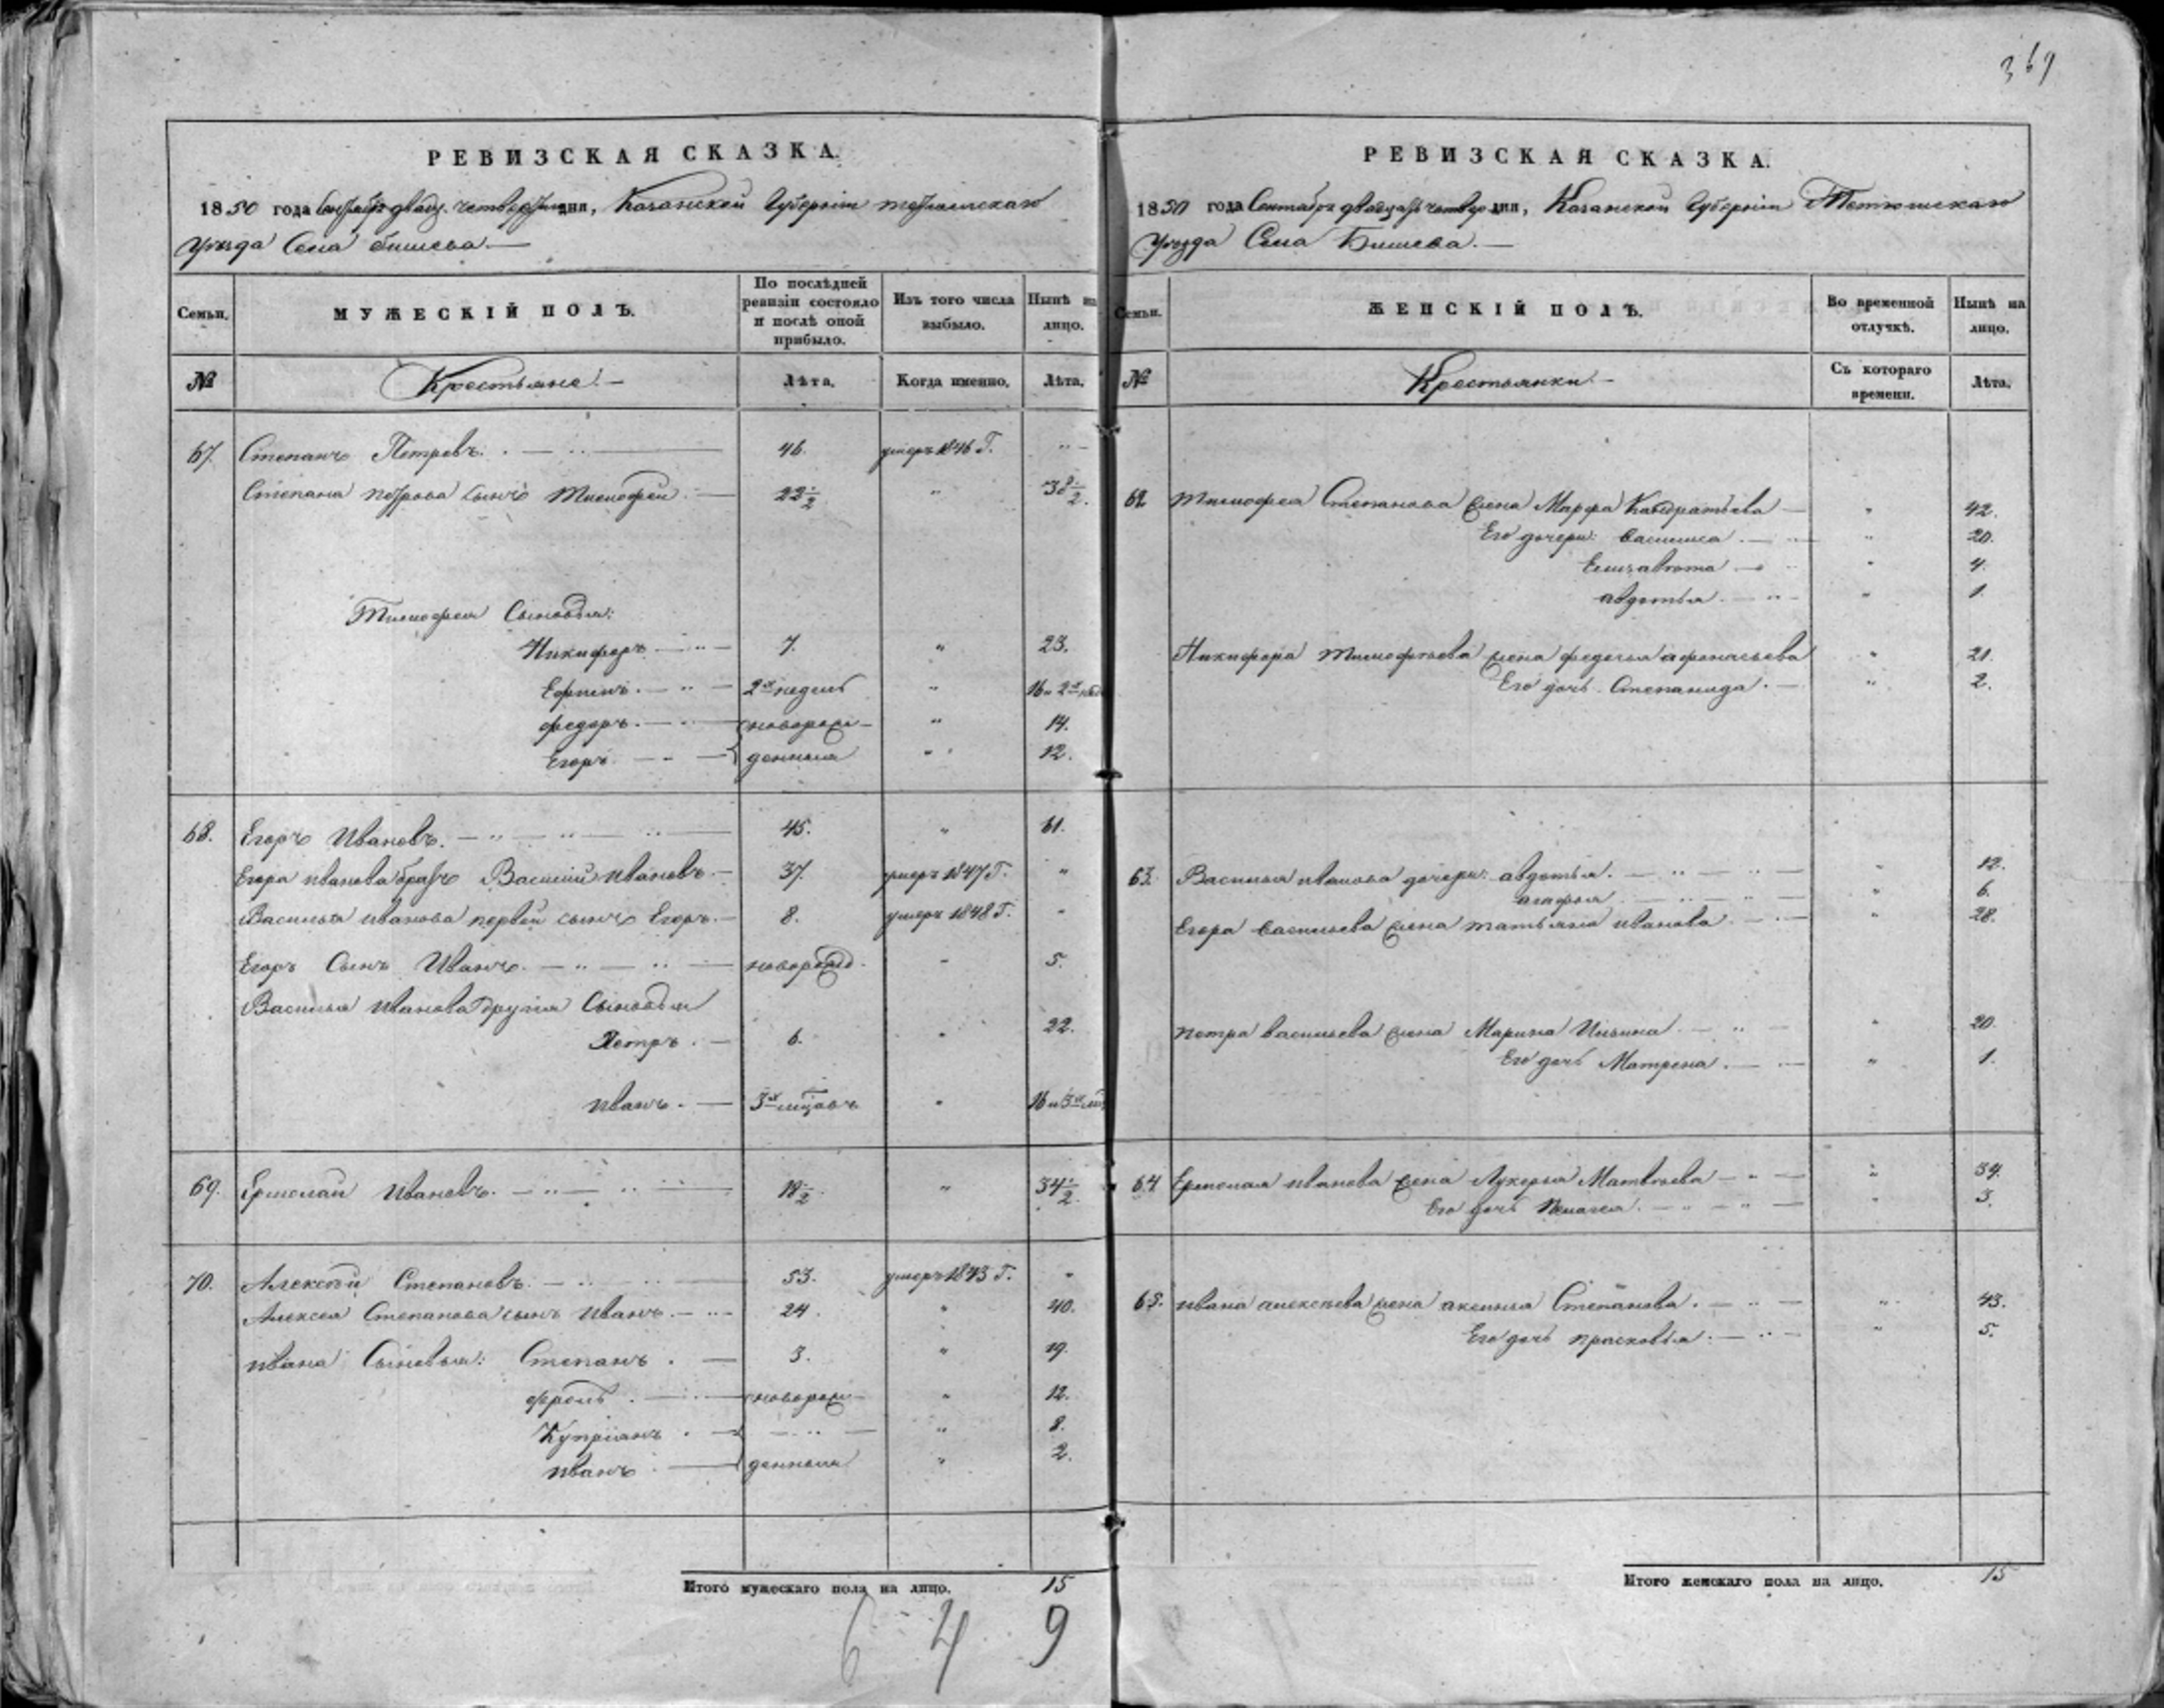 369
РЕВИЗСКАЯ СКАЗКА.
1850 года Сентября двадц. четвертаго дня, Казанской Губерніи Тетюшскаго
Уѣзда Села Бишева.
Семьи.
МУЖЕСКІЙ ПОЛЪ.
По послѣдней ревизіи состояло и послѣ оной прибыло.
Изъ того числа выбыло.
Нынѣ на лицо.
№
Крестьяне.
Лѣта.
Когда именно.
Лѣта.
67. Степанъ Петровъ. 46. умеръ 1846 Г. "
Степана Петрова сынъ Тимофей 22 1/2 " 38 1/2.
Тимофея Сыновья:
Никифоръ 7. " 23.
Ефимъ. 2х недель " 16 и 2х нед
Федоръ. новорож- " 14.
Егоръ денныя " 12.
68. Егоръ Ивановъ. 45. " 61.
Егора Иванова братъ Василий Ивановъ. 37. умеръ 1847 Г. "
Василья Иванова первый сынъ Егоръ. 8. умеръ 1848 Г. "
Егоръ Сынъ Иванъ. новорожд. " 5.
Василья Иванова другия Сыновья
Петръ. 6. " 22.
Иванъ. 3х мцовъ " 16 и 3х мц
69. Ермолай Ивановъ. 18 1/2. " 34 1/2.
70. Алексѣй Степановъ. 53. умеръ 1843 Г. "
Алексея Степанова сынъ Иванъ. 24. " 40.
Ивана Сыновья: Степанъ. 3. " 19.
Фролъ. новорож- " 12.
Купріянъ. " 8.
Иванъ денныя " 2.
Итого мужескаго пола на лицо. 15
6 4 9
РЕВИЗСКАЯ СКАЗКА.
1850 года Сентября двадцать четвер дня, Казанской Губерніи Тетюшскаго
Уѣзда Села Бишева.
Семьи.
ЖЕНСКІЙ ПОЛЪ.
Во временной отлучкѣ.
Нынѣ на лицо.
№
Крестьянки
Съ котораго времени.
Лѣта.
62. Тимофея Степанова жена Марфа Кандратьева " 42.
Его дочери: Василиса. " 20.
Елизавѣта " 4.
Авдотья. " 1.
Никифора Тимофѣева жена Федосья Афонасьева " 21.
Его дочь Степанида. " 2.
63. Василья Иванова дочери: Авдотья. " 12.
Агафья " 6.
Егора Васильева жена Татьяна Иванова " 28.
Петра Васильева жена Марина Ильина " 20.
Его дочь Матрена. " 1.
64. Ермолая Иванова жена Лукерья Матвѣева " 34.
Его дочь Пелагея. " 3.
65. Ивана Алексѣева жена Аксинья Степанова. " 43.
Его дочь Прасковья. " 5.
Итого женскаго пола на лицо. 15